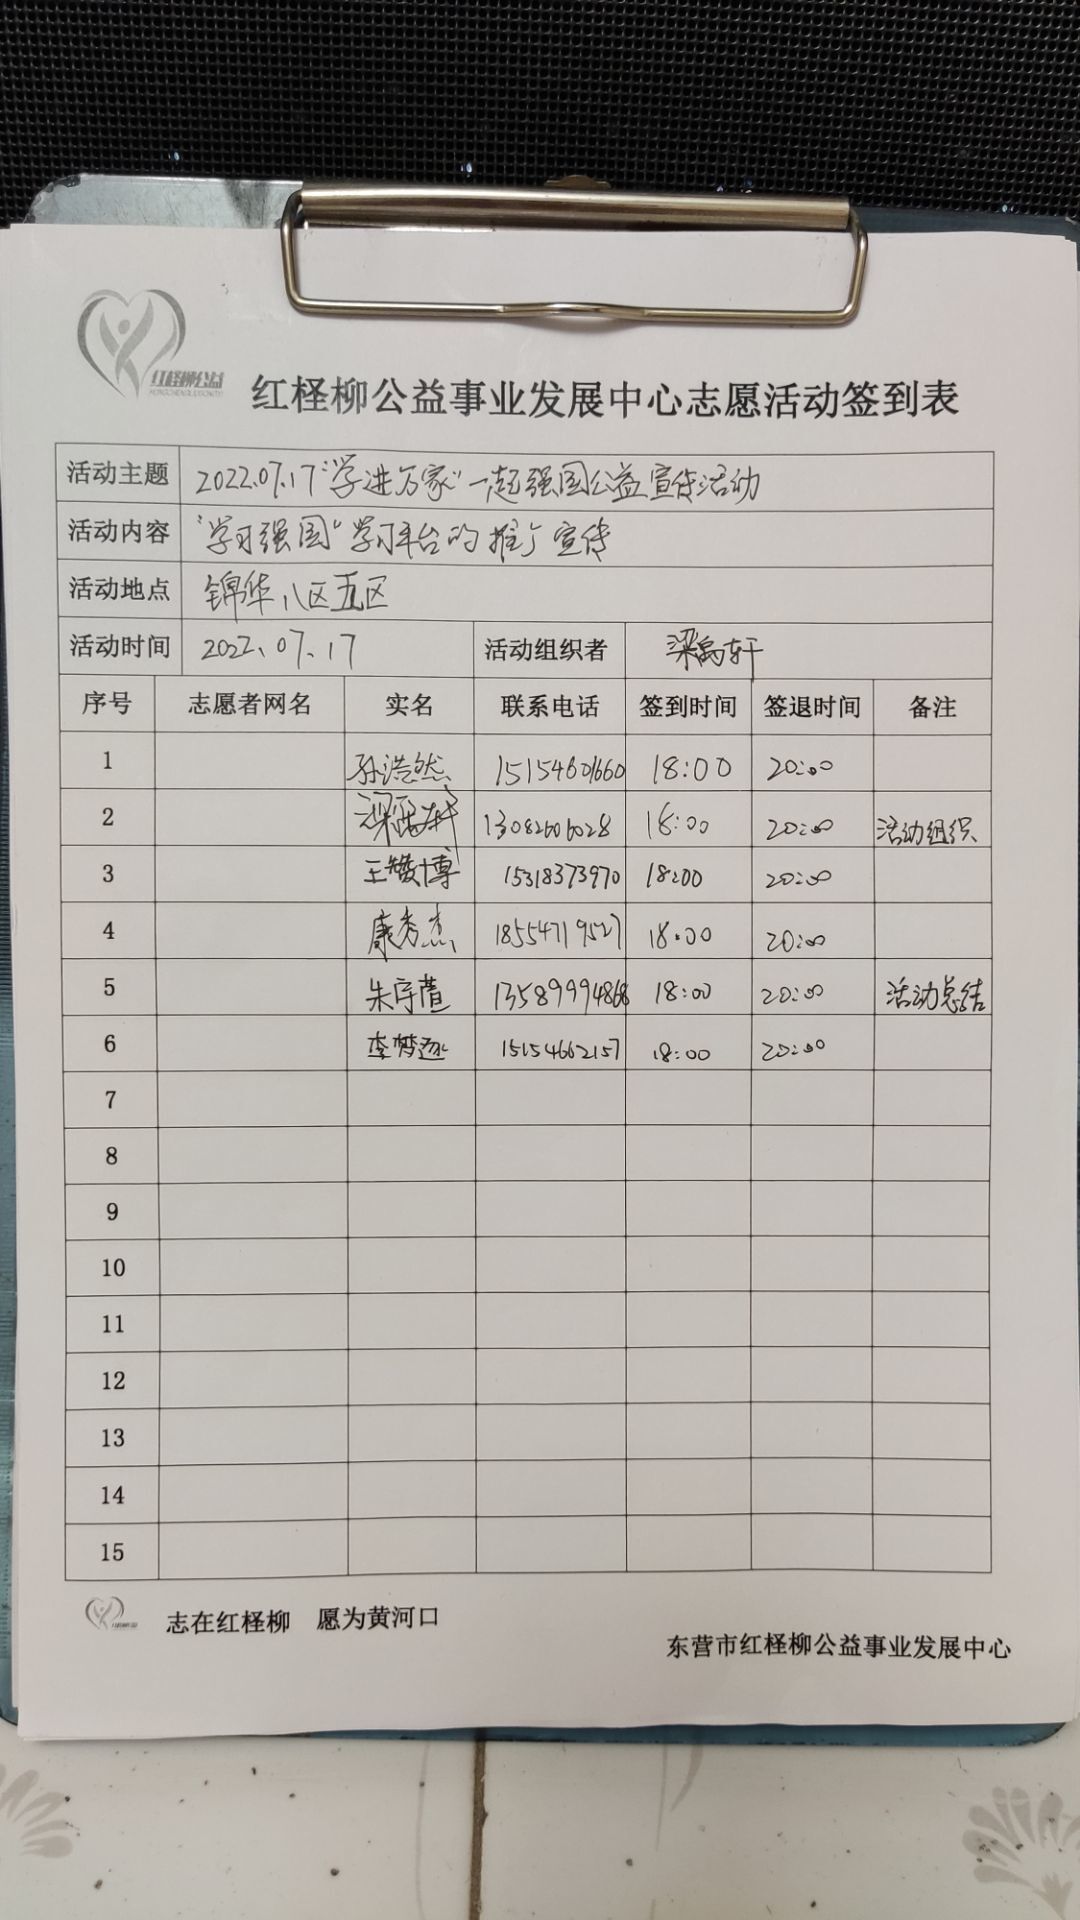 红柽柳公益
红柽柳公益事业发展中心志愿活动签到表
活动主题 2022.07.17"学进万家"一起强国公益宣传活动
活动内容 "学习强国"学习平台的推广宣传
活动地点 锦华八区五区
活动时间 2022.07.17 活动组织者 梁禹轩
序号 志愿者网名 实名 联系电话 签到时间 签退时间 备注
1 孙浩然 15154601660 18:00 20:00
2 13082606028 18:00 20:00 活动组织
3 王赞博 15318373970 18:00 20:00
4 康秀杰 18554719527 18:00 20:00
5 朱宇萱 13589994868 18:00 20:00 活动总结
6 李梦逐 15154662157 18:00 20:00
7
8
9
10
11
12
13
14
15
志在红柽柳 愿为黄河口
东营市红柽柳公益事业发展中心